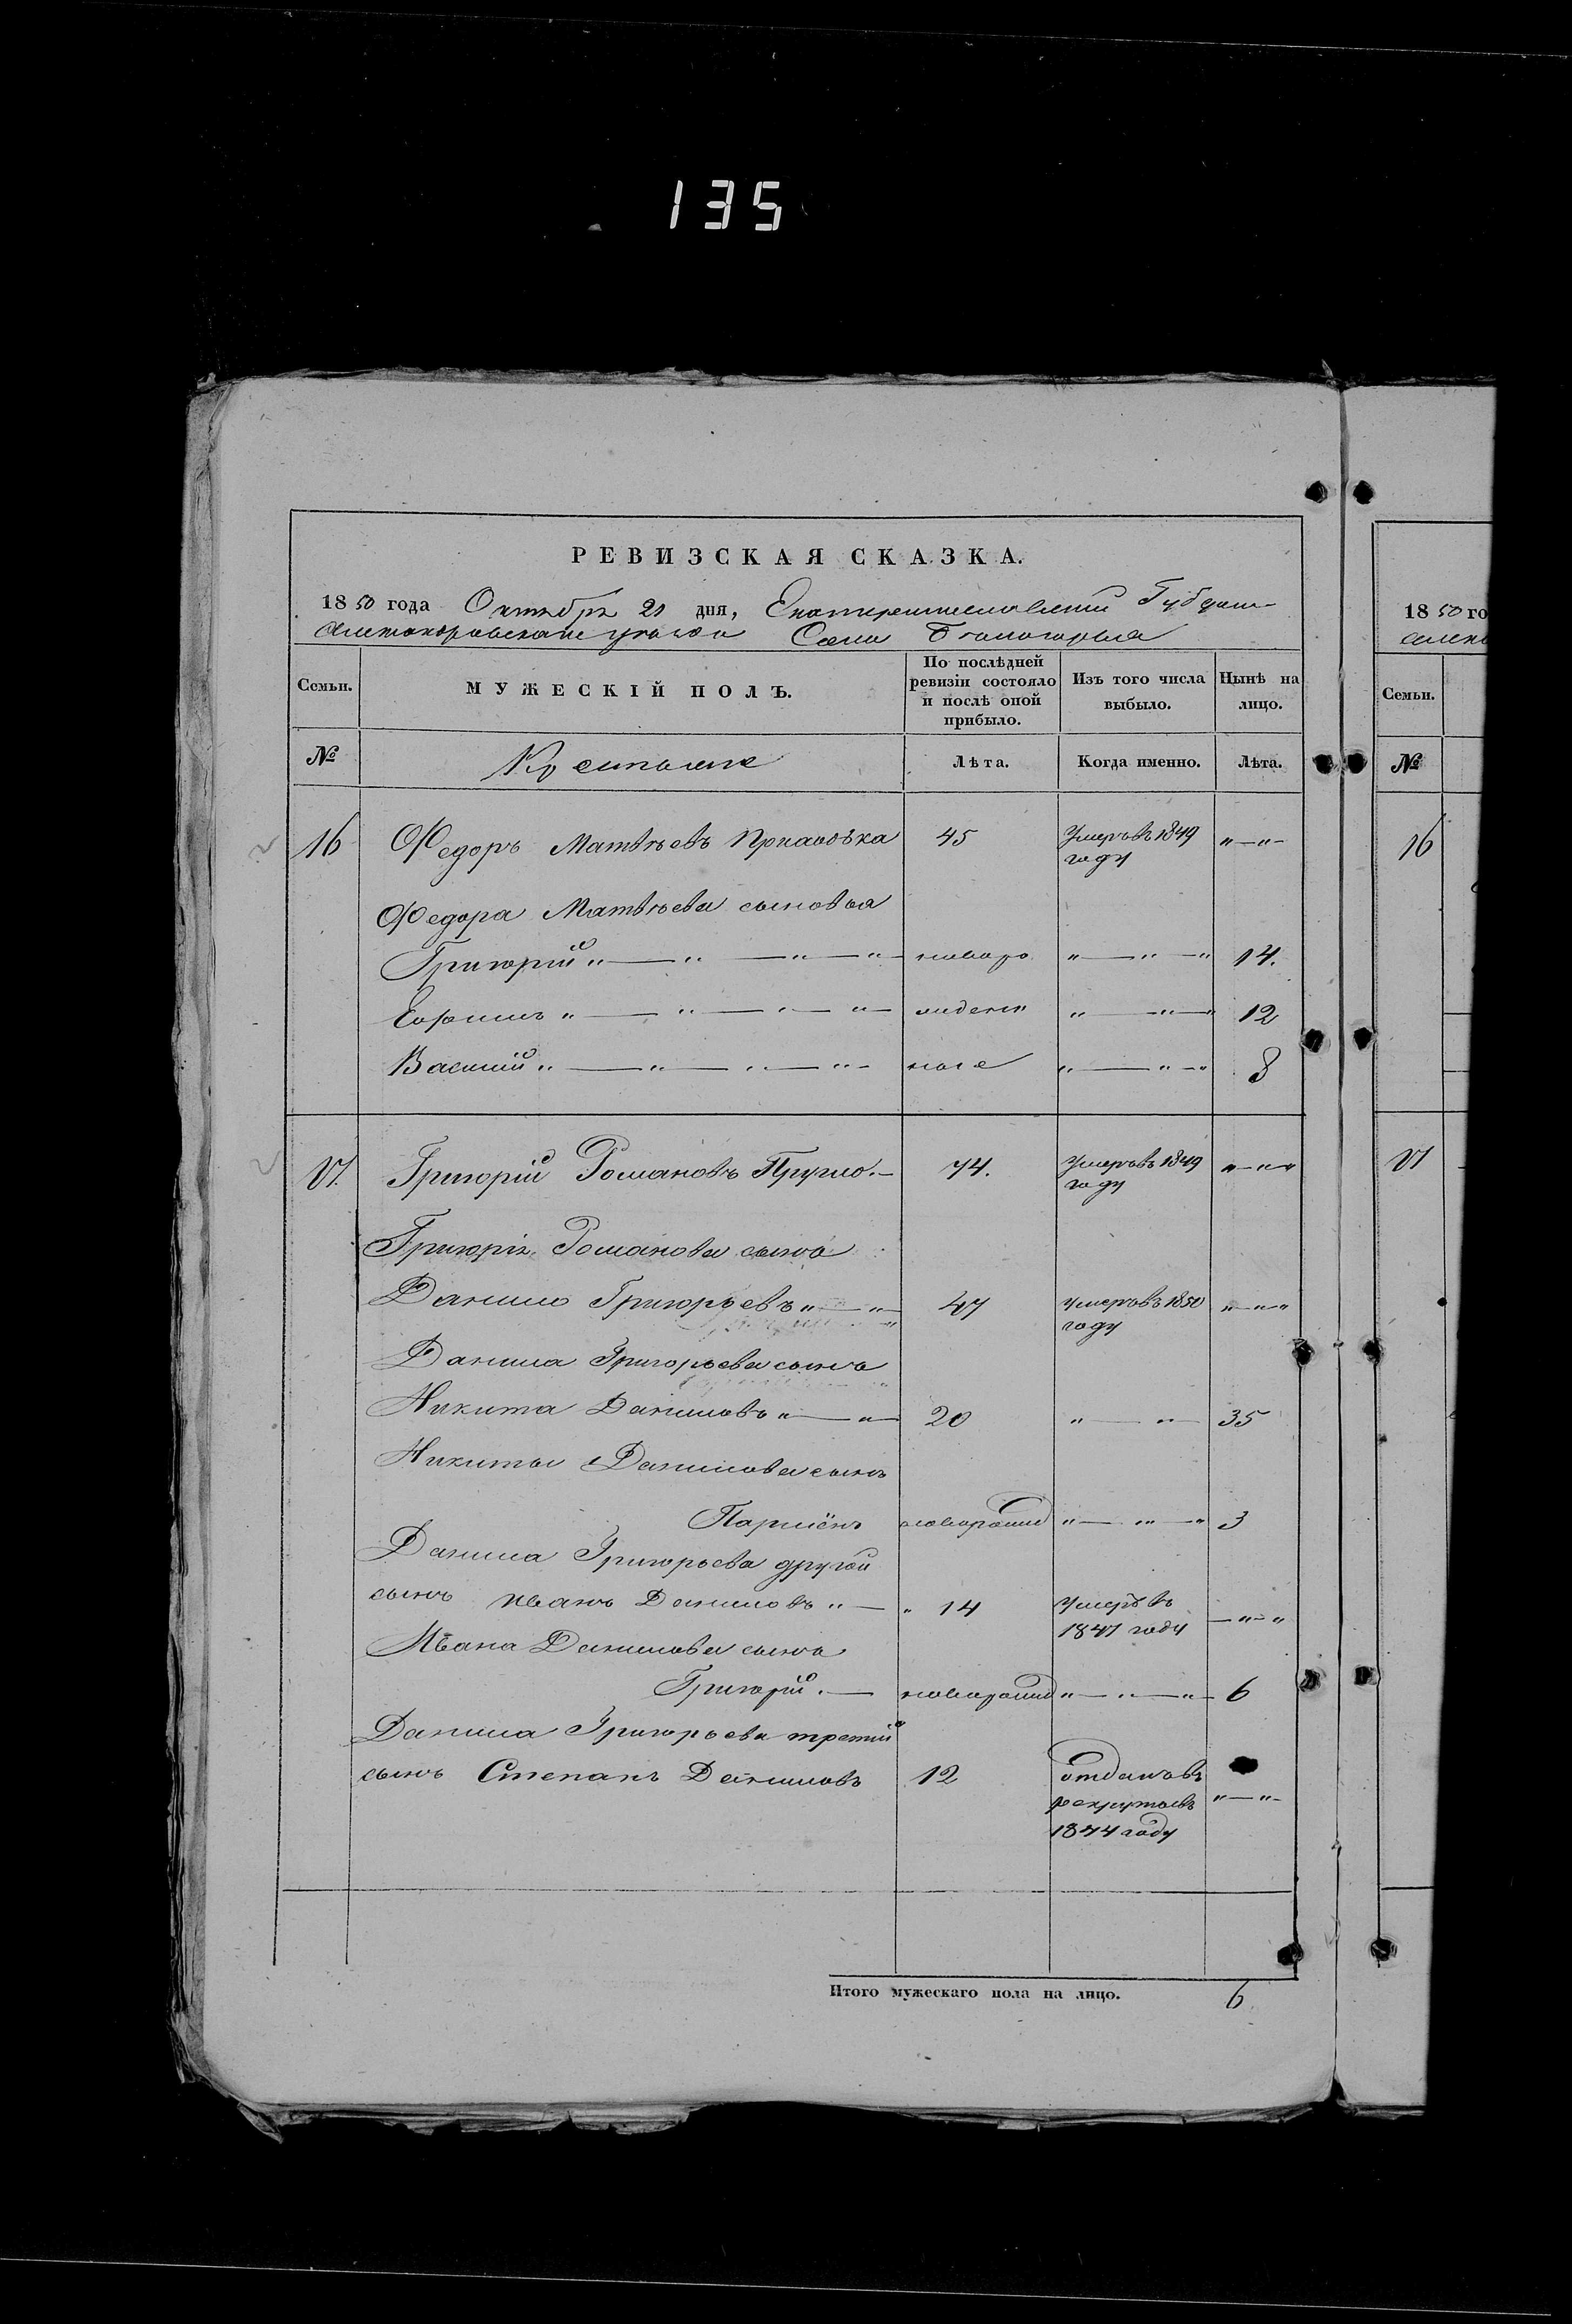 135
РЕВИЗСКАЯ СКАЗКА.
1850 года Октября 21 дня, Екатеринославской Губерніи
Александровскаго уѣзда Села Бѣлогорья
Семьи. МУЖЕСКІЙ ПОЛЪ. По послѣдней ревизіи состояло и послѣ оной прибыло. Изъ того числа выбыло. Нынѣ на лицо.
№ Крестьяне Лѣта. Когда именно. Лѣта.
16 Федоръ Матвѣевъ 45 Умеръ въ 1849 году "—"—
Федора Матвѣева сыновья
Григорій "—"—"—"— новоро "—"—" 14.
Ефимъ "—"—"—"— "—"—" 12
Василій "—"—"—"— ные "—"—" 8
17. Григорій Романовъ 74. Умеръ въ 1849 году "—"—"
Григорія Романова сынъ
Данило Григорьевъ "—"— 47 умеръ въ 1850 году "—"—"
Данила Григорьева сынъ
Никита Даниловъ "—"— 20 "—"— 35
Никиты Данилова сынъ
Парменъ новорожд "—"—" 3
Данила Григорьева другой
сынъ Иванъ Даниловъ "— " 14 Умеръ въ 1847 году —"—"
Ивана Данилова сынъ
Григорій. — новорожд "—"—"— 6
Данила Григорьева третій
сынъ Степанъ Даниловъ 12 отданъ въ рекруты въ 1844 году "—"—
Итого мужескаго пола на лицо. 6
1850 го
Семьи.
№
16
17